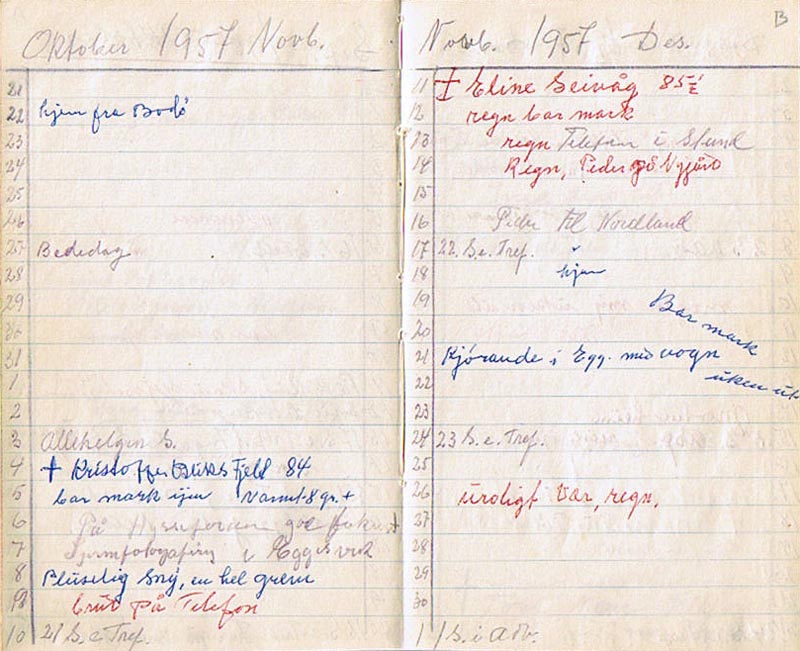 Oktober 1957 Novb.
21
22 hjem fra Bodö
23
24
25
26
27 Bededag
28
29
30
31
1
2
3 Allehelgen S.
4 † Kristoffer Fjeld 84
5 bar mark ijen Varmt 8 gr. +
6 På
7 i
8 en hel greie
9 brut på Telefon
10 21 S. e. Tref.
B
Novb. 1957 Des.
11 † Eline Seivåg 85 1/2
12 regn bar mark
13 regn Telefon i Stund
14 Regn, Peder på
15
16 Peder til Nordland
17 22. S. e. Tref.
18 hjem
19 Bar mark
20
21 Kjörande i Egg. med vogn
22 uken ut
23
24 23 S. e. Tref.
25
26 uroligt Vær, regn.
27
28
29
30
1 1 S. i Adv.